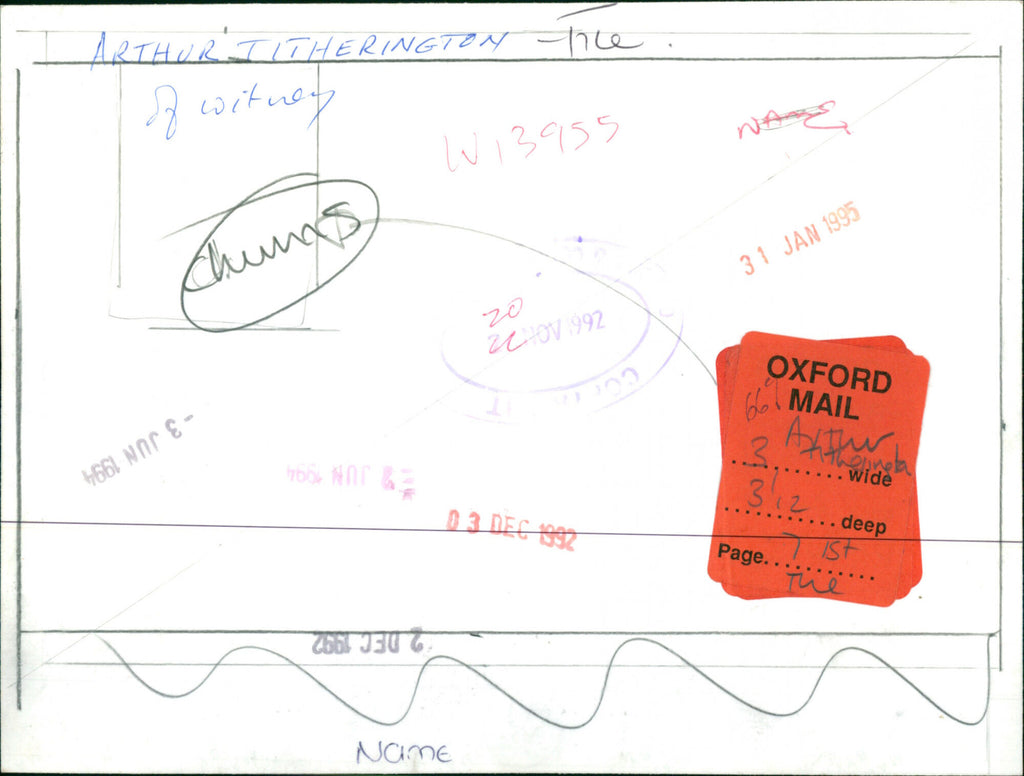 ARTHUR TITHERINGTON - THE
of witney
W13955
NAME
chumps
31 JAN 1995
20
22
NOV 1992
- 3 JUN 1994
- 3 JUN 1994
03 DEC 1992
2 DEC 1992
OXFORD
MAIL
66%
Arthur
3 wide
3 1/2 deep
Page 7 1st
The
Name